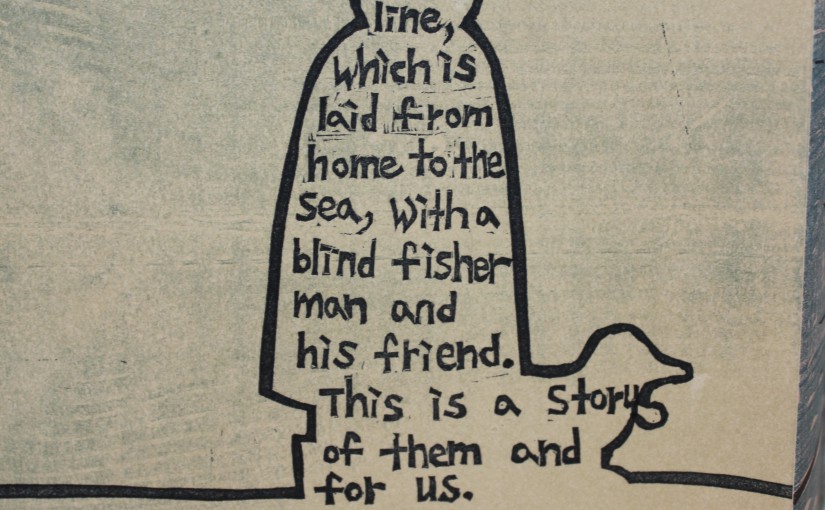 line,
which is
laid from
home to the
sea, with a
blind fisher
man and
his friend.
This is a story
of them and
for us.